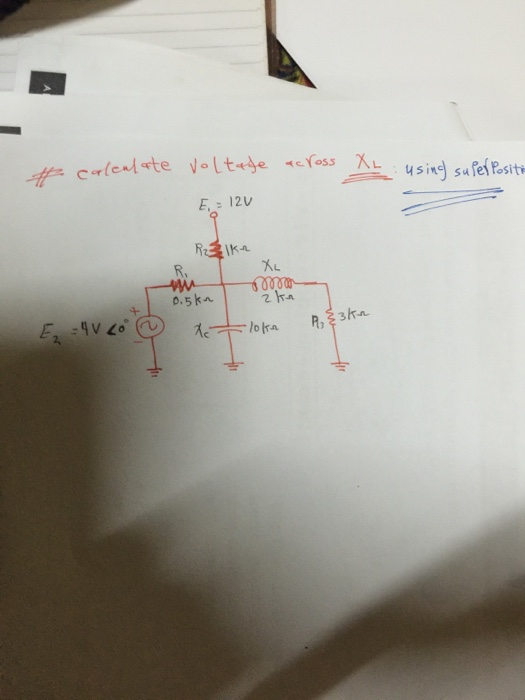 # calculate voltage across XL : using superposit
E1 = 12V
R2 1KΩ
R1
XL
0.5KΩ
2KΩ
+
E2 = 4V <0°
-
Xc
10KΩ
R3
3KΩ